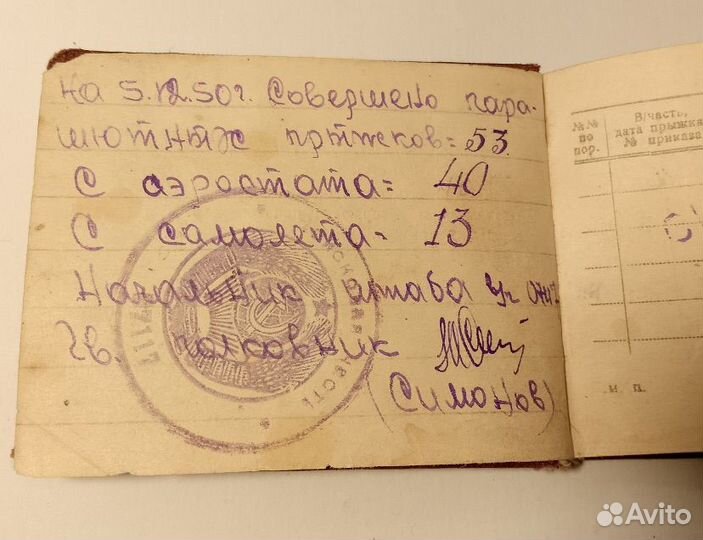 на 5.12.50г. Совершено пара-
шютных прыжков = 53
С аэростата = 40
С самолета - 13
Начальник штаба
Гв. полковник
(Симонов)
№№ по пор.
В/часть, дата прыжка № приказа
М. П.
Avito